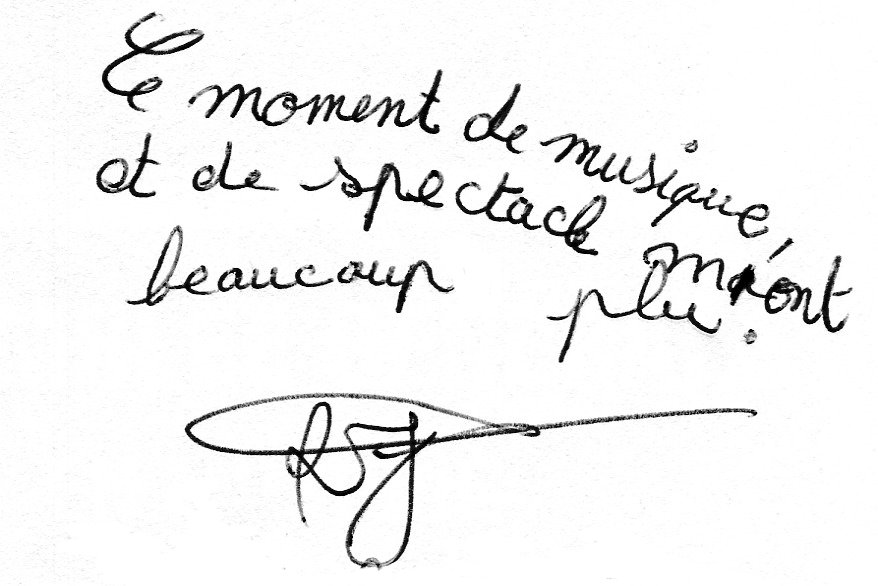 Ce moment de musique,
et de spectacle m'ont
beaucoup plu.